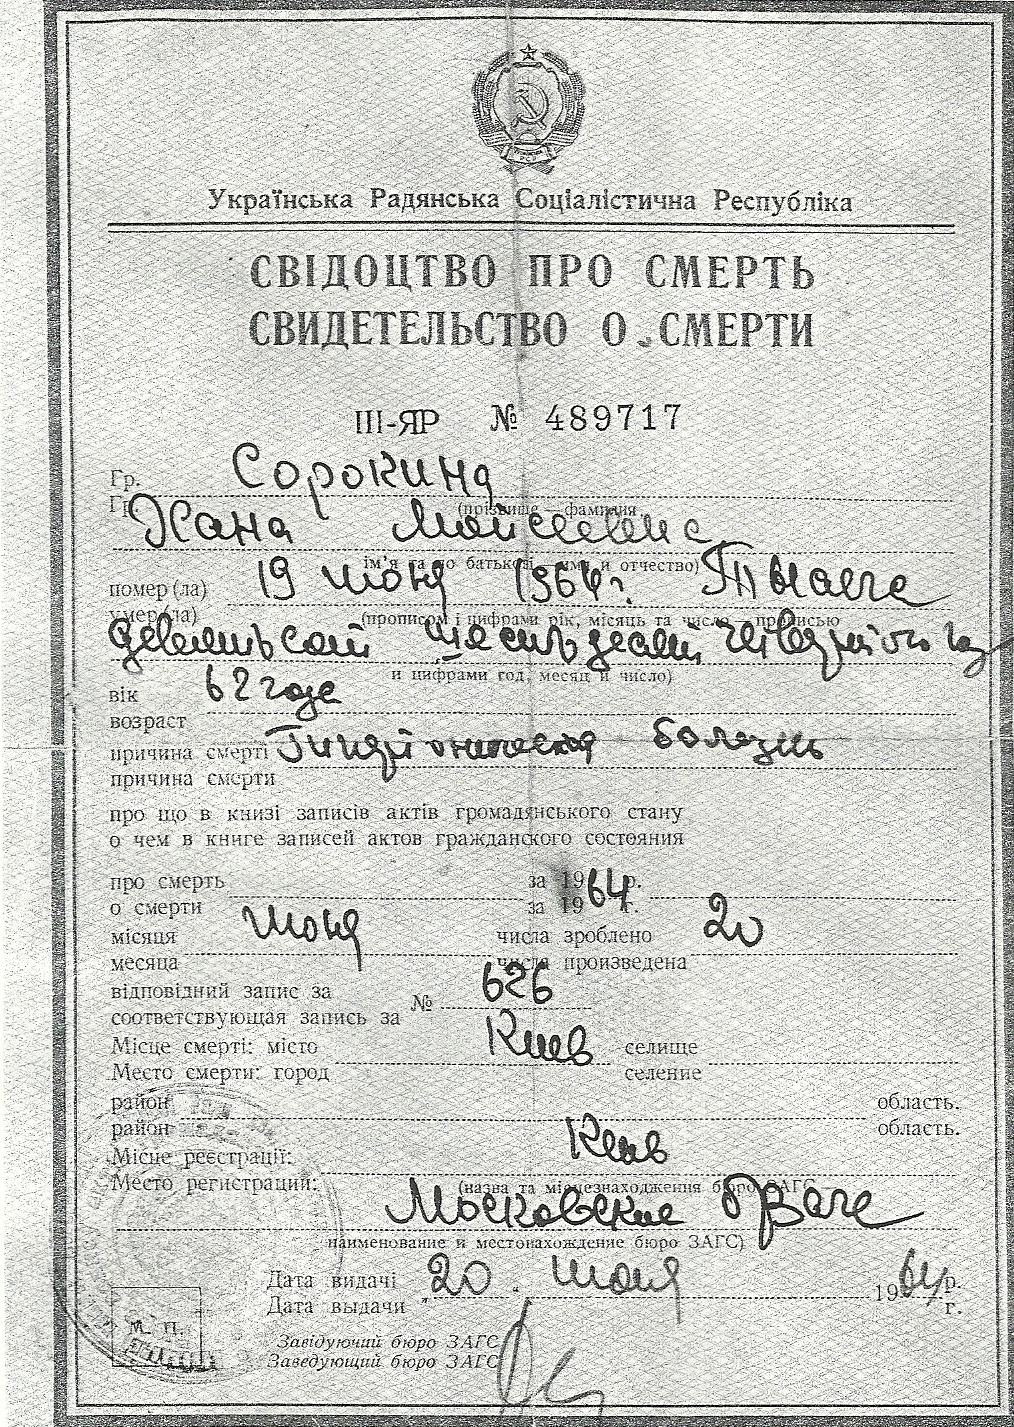 Українська Радянська Соціалістична Республіка
СВІДОЦТВО ПРО СМЕРТЬ
СВИДЕТЕЛЬСТВО О СМЕРТИ
III-ЯР № 489717
Гр. Сорокина
Гр. (прізвище — фамилия
Хана Мойсеевна
ім'я та по батькові — имя и отчество)
помер(ла) 19 июня 1964г. Тысяча
умер(ла) (прописом і цифрами рік, місяць та число — прописью
девятьсот шестьдесят четвертого
и цифрами год, месяц и число)
вік 62 года
возраст
причина смерті Гипертоническая болезнь
причина смерти
про що в книзі записів актів громадянського стану
о чем в книге записей актов гражданского состояния
про смерть за 1964 р.
о смерти за 19 г.
місяця июня числа зроблено 20
месяца числа произведена
відповідний запис за № 626
соответствующая запись за
Місце смерті: місто Киев селище
Место смерти: город селение
район область.
район область.
Місце реєстрації: Киев
Место регистрации: (назва та місцезнаходження бюро ЗАГС
Московское
наименование и местонахождение бюро ЗАГС)
Дата видачі 20 июня 1964 р.
Дата выдачи г.
М. П.
Завідуючий бюро ЗАГС
Заведующий бюро ЗАГС